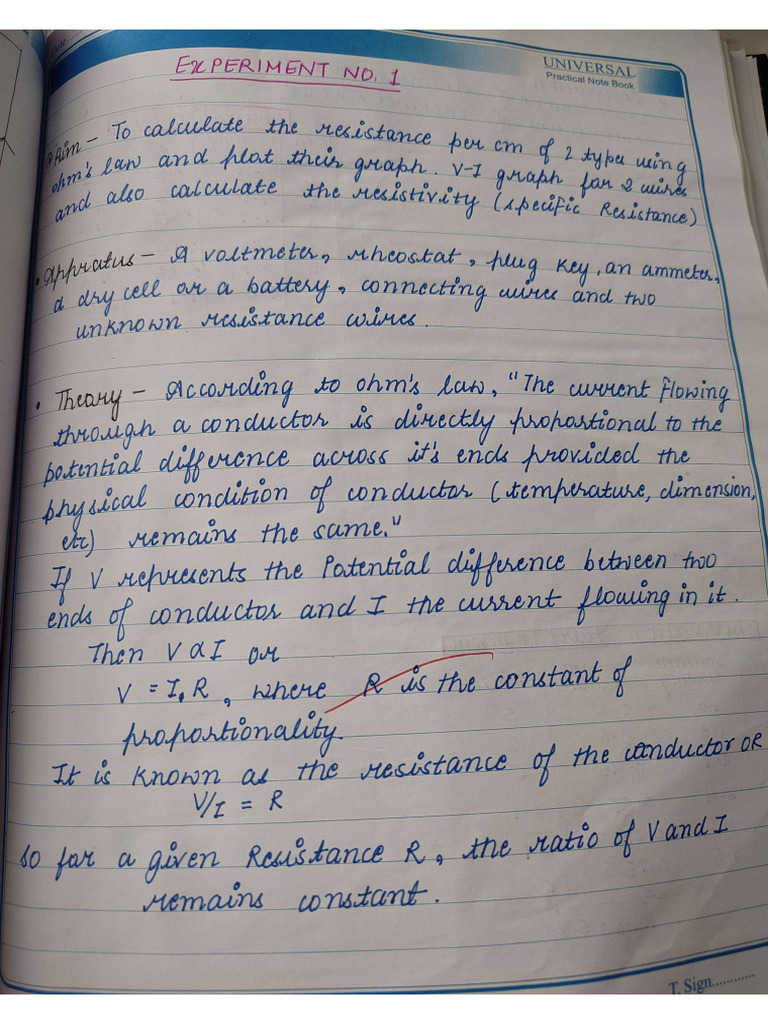 EXPERIMENT NO. 1
UNIVERSAL
Practical Note Book
Aim - To calculate the resistance per cm of 2 types using
ohm's law and plot their graph. V-I graph for 2 wires
and also calculate the resistivity (specific Resistance)
• Appratus - A voltmeter, rheostat, plug key, an ammeter,
a dry cell or a battery, connecting wires and two
unknown resistance wires.
• Theory - According to ohm's law, "The current flowing
through a conductor is directly proportional to the
potential difference across it's ends provided the
physical condition of conductor (temperature, dimension,
etc) remains the same."
If V represents the Potential difference between two
ends of conductor and I the current flowing in it.
Then V α I or
V = I.R, where R is the constant of
proportionality.
It is known as the resistance of the conductor OR
V/I = R
So for a given Resistance R, the ratio of V and I
remains constant.
T. Sign............